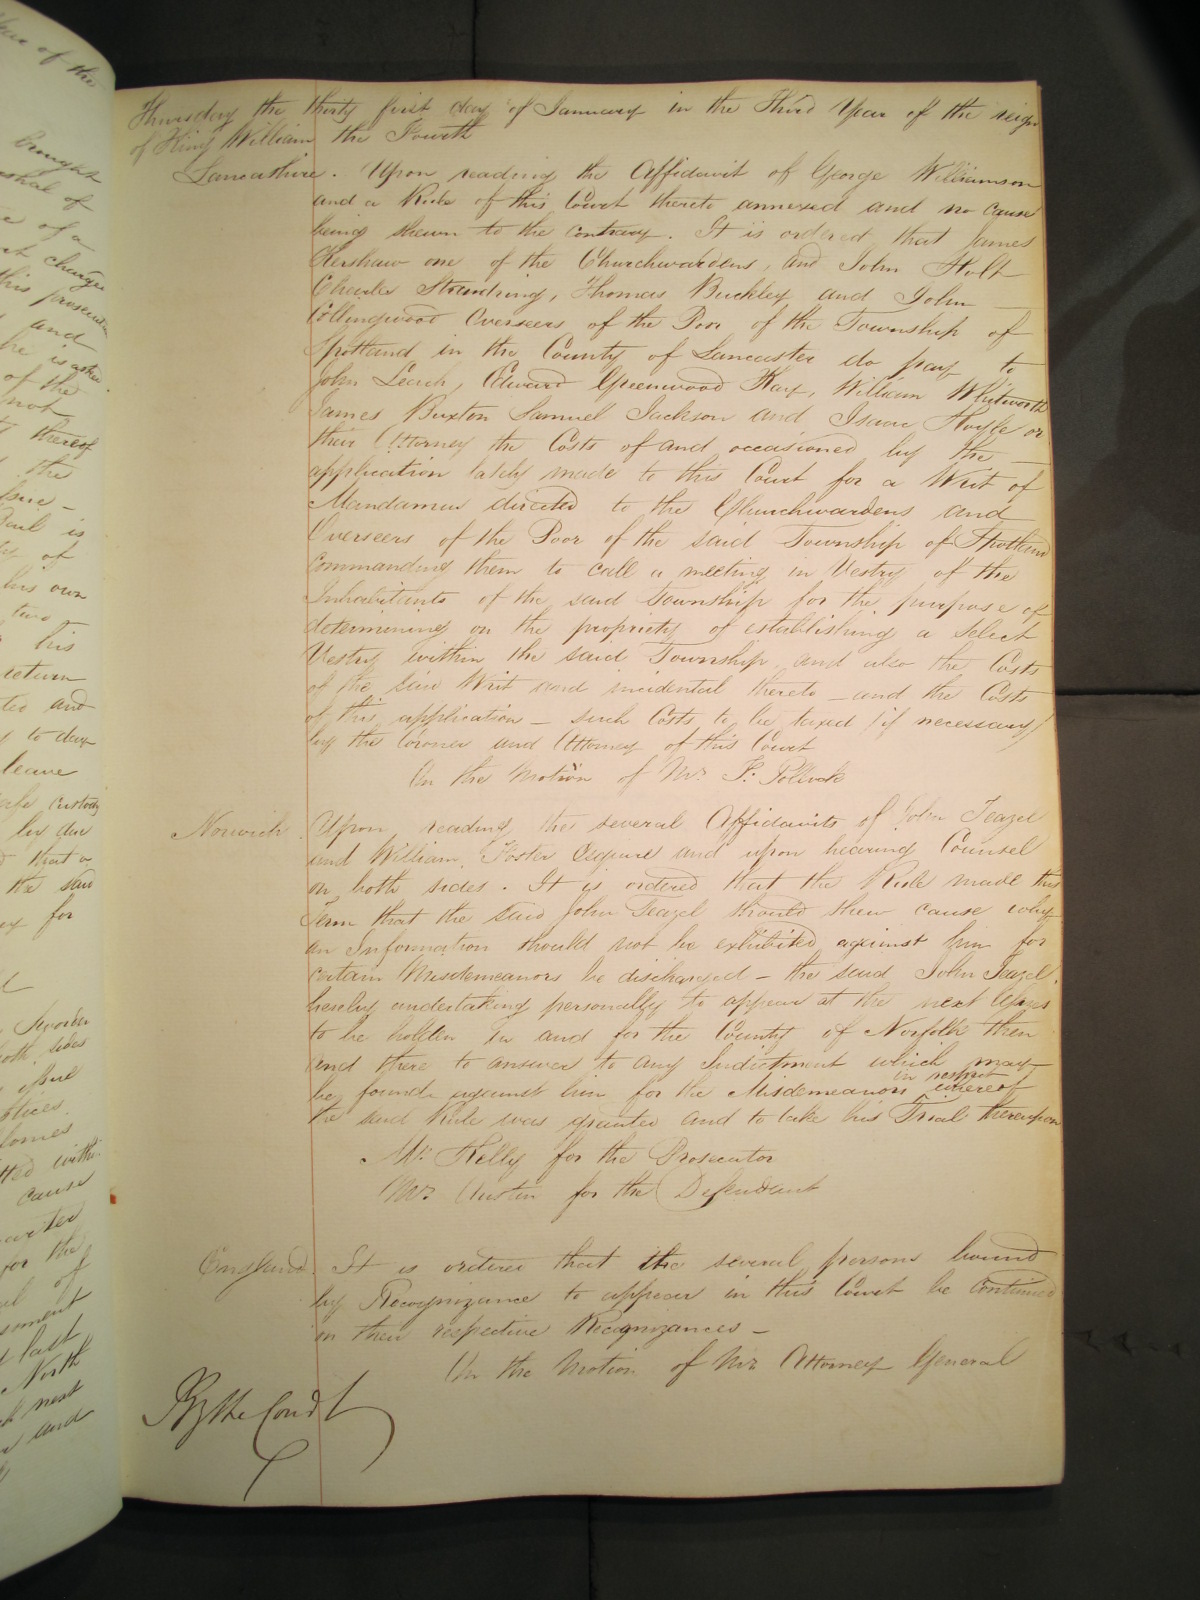 Thursday the thirty first day of January in the Third Year of the reign
of King William the Fourth
Lancashire. Upon reading the Affidavit of George Williamson
and a Rule of this Court thereto annexed and no cause
being shewn to the contrary. It is ordered that James
Kershaw one of the Churchwardens, and John Holt
Charles Standring, Thomas Buckley and John
Collingwood Overseers of the Poor of the Township of
Spotland in the County of Lancaster do pay to
John Leach, Edward Greenwood Kay, William Whitworth
James Buxton Samuel Jackson and Isaac Hoyle or
their Attorney the Costs of and occasioned by the
application lately made to this Court for a Writ of
Mandamus directed to the Churchwardens and
Overseers of the Poor of the said Township of Spotland
commanding them to call a meeting in Vestry of the
Inhabitants of the said Township for the purpose of
determining on the propriety of establishing a Select
Vestry within the said Township and also the Costs
of the said Writ and incidental thereto – and the Costs
of this application – such Costs to be taxed (if necessary)
by the Coroner and Attorney of this Court
On the Motion of Mr. F. Pollock
Norwich. Upon reading the several Affidavits of John Teazel
and William Foster Esquire and upon hearing Counsel
on both sides. It is ordered that the Rule made this
Term that the said John Teazel should shew cause why
an Information should not be exhibited against him for
certain Misdemeanors be discharged – the said John Teazel
hereby undertaking personally to appear at the next Assizes
to be holden in and for the County of Norfolk then
and there to answer to any Indictment which may
be found against him for the Misdemeanors in respect whereof
the said Rule was granted and to take his Trial thereupon
Mr. Kelly for the Prosecutor
Mr. Austin for the Defendant
England. It is ordered that the several persons bound
by Recognizance to appear in this Court be continued
in their respective Recognizances –
On the Motion of Mr Attorney General
By the Court